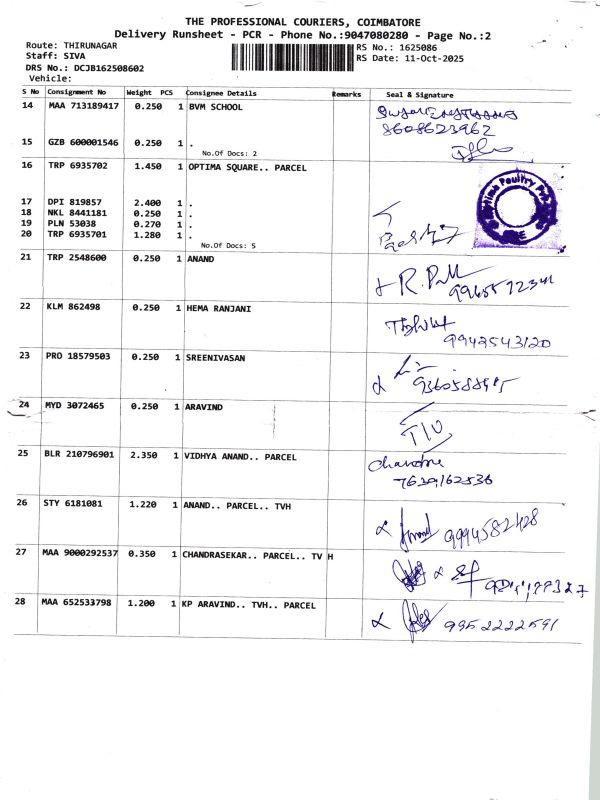 THE PROFESSIONAL COURIERS, COIMBATORE
Delivery Runsheet - PCR - Phone No.:9047080280 - Page No.:2
Route: THIRUNAGAR
Staff: SIVA
DRS No.: DCJB162508602
Vehicle:
RS No.: 1625086
RS Date: 11-Oct-2025
S No Consignment No Weight PCS Consignee Details Remarks Seal & Signature
14 MAA 713189417 0.250 1 BVM SCHOOL
8608623962
15 GZB 600001546 0.250 1 .
No.Of Docs: 2
16 TRP 6935702 1.450 1 OPTIMA SQUARE.. PARCEL
17 DPI 819857 2.400 1 .
18 NKL 8441181 0.250 1 .
19 PLN 53038 0.270 1 .
20 TRP 6935701 1.280 1 .
No.Of Docs: 5
21 TRP 2548600 0.250 1 ANAND
22 KLM 862498 0.250 1 HEMA RANJANI
9942543120
23 PRO 18579503 0.250 1 SREENIVASAN
24 MYD 3072465 0.250 1 ARAVIND
25 BLR 210796901 2.350 1 VIDHYA ANAND.. PARCEL
26 STY 6181081 1.220 1 ANAND.. PARCEL.. TVH
9994582428
27 MAA 9000292537 0.350 1 CHANDRASEKAR.. PARCEL.. TV H
28 MAA 652533798 1.200 1 KP ARAVIND.. TVH.. PARCEL
9952222591